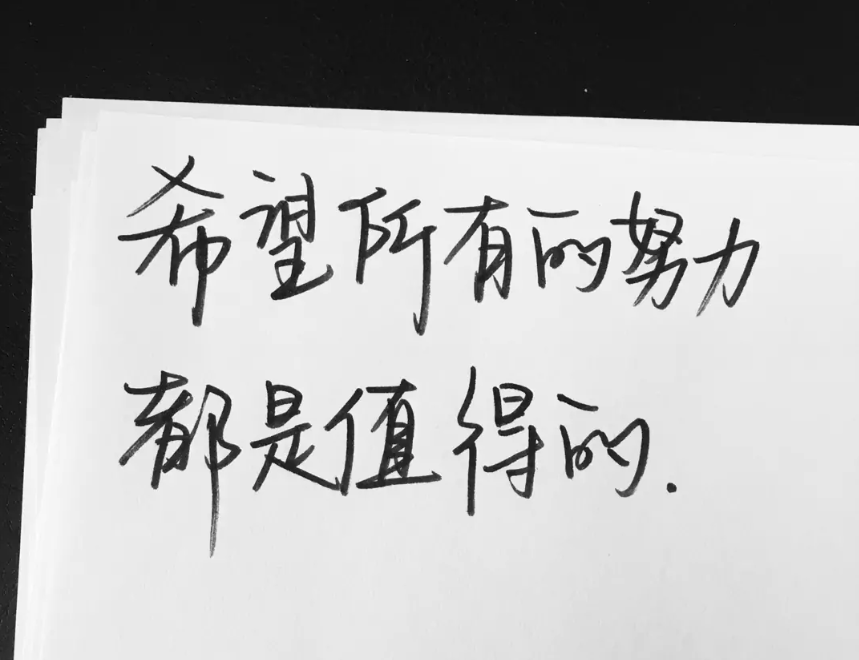 希望所有的努力
都是值得的.